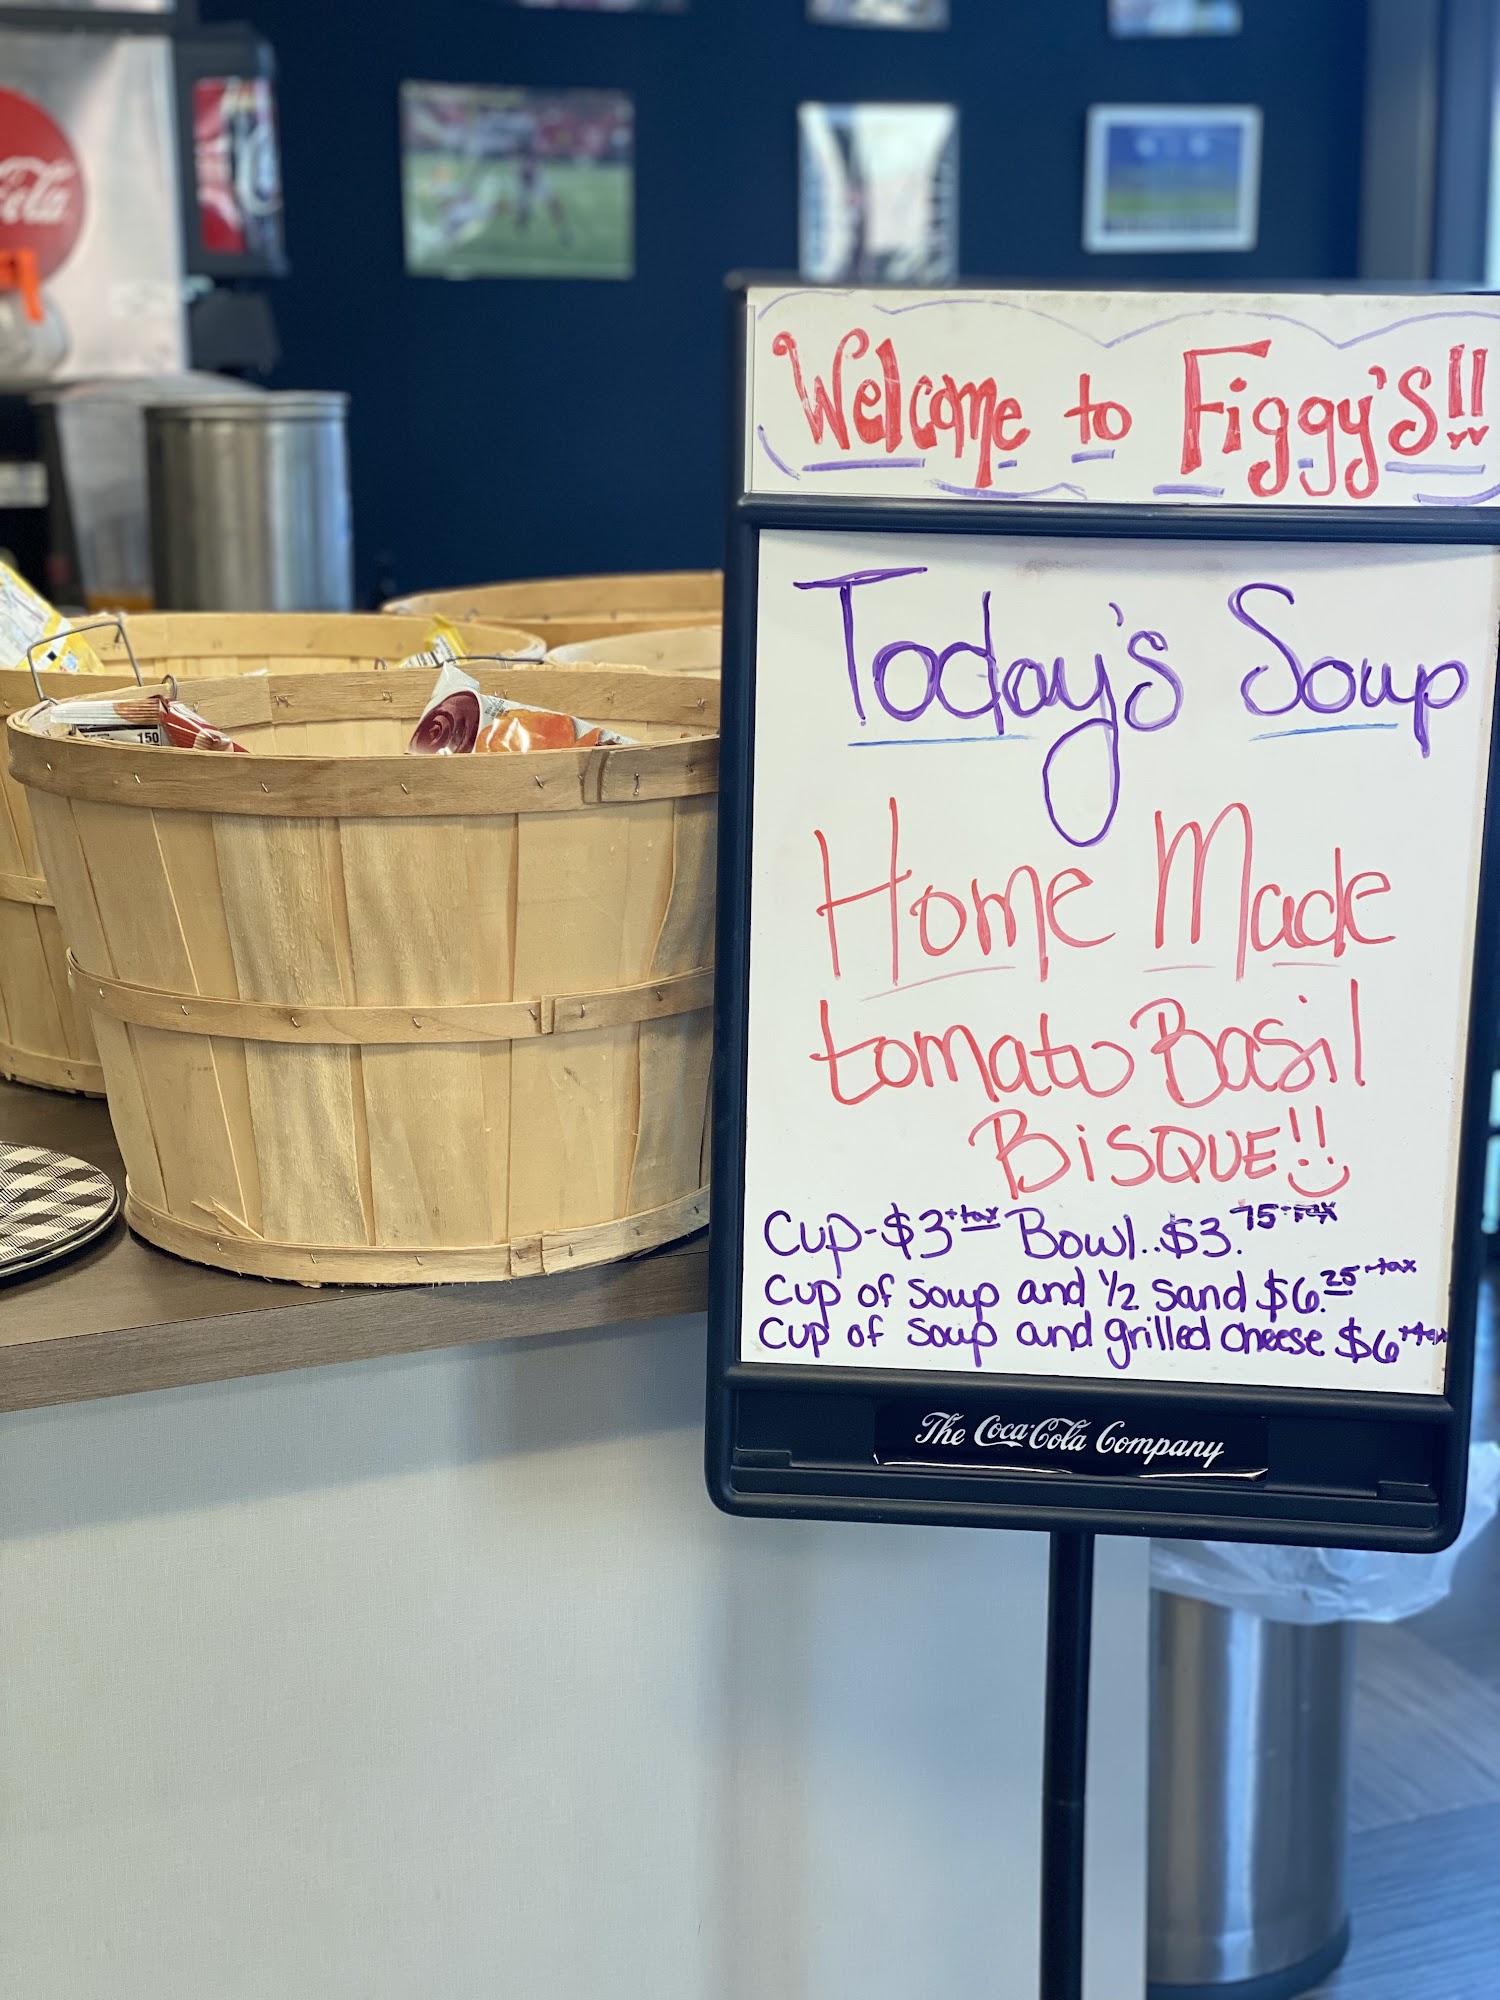 Cola
Welcome to Figgy's!!
Today's Soup
Home Made
tomato Basil
BisQUE!!
Cup-$3 +tax Bowl..$3.75 +tax
Cup of soup and 1/2 sand $6.25 +tax
Cup of soup and grilled cheese $6 +tax
The Coca-Cola Company
150